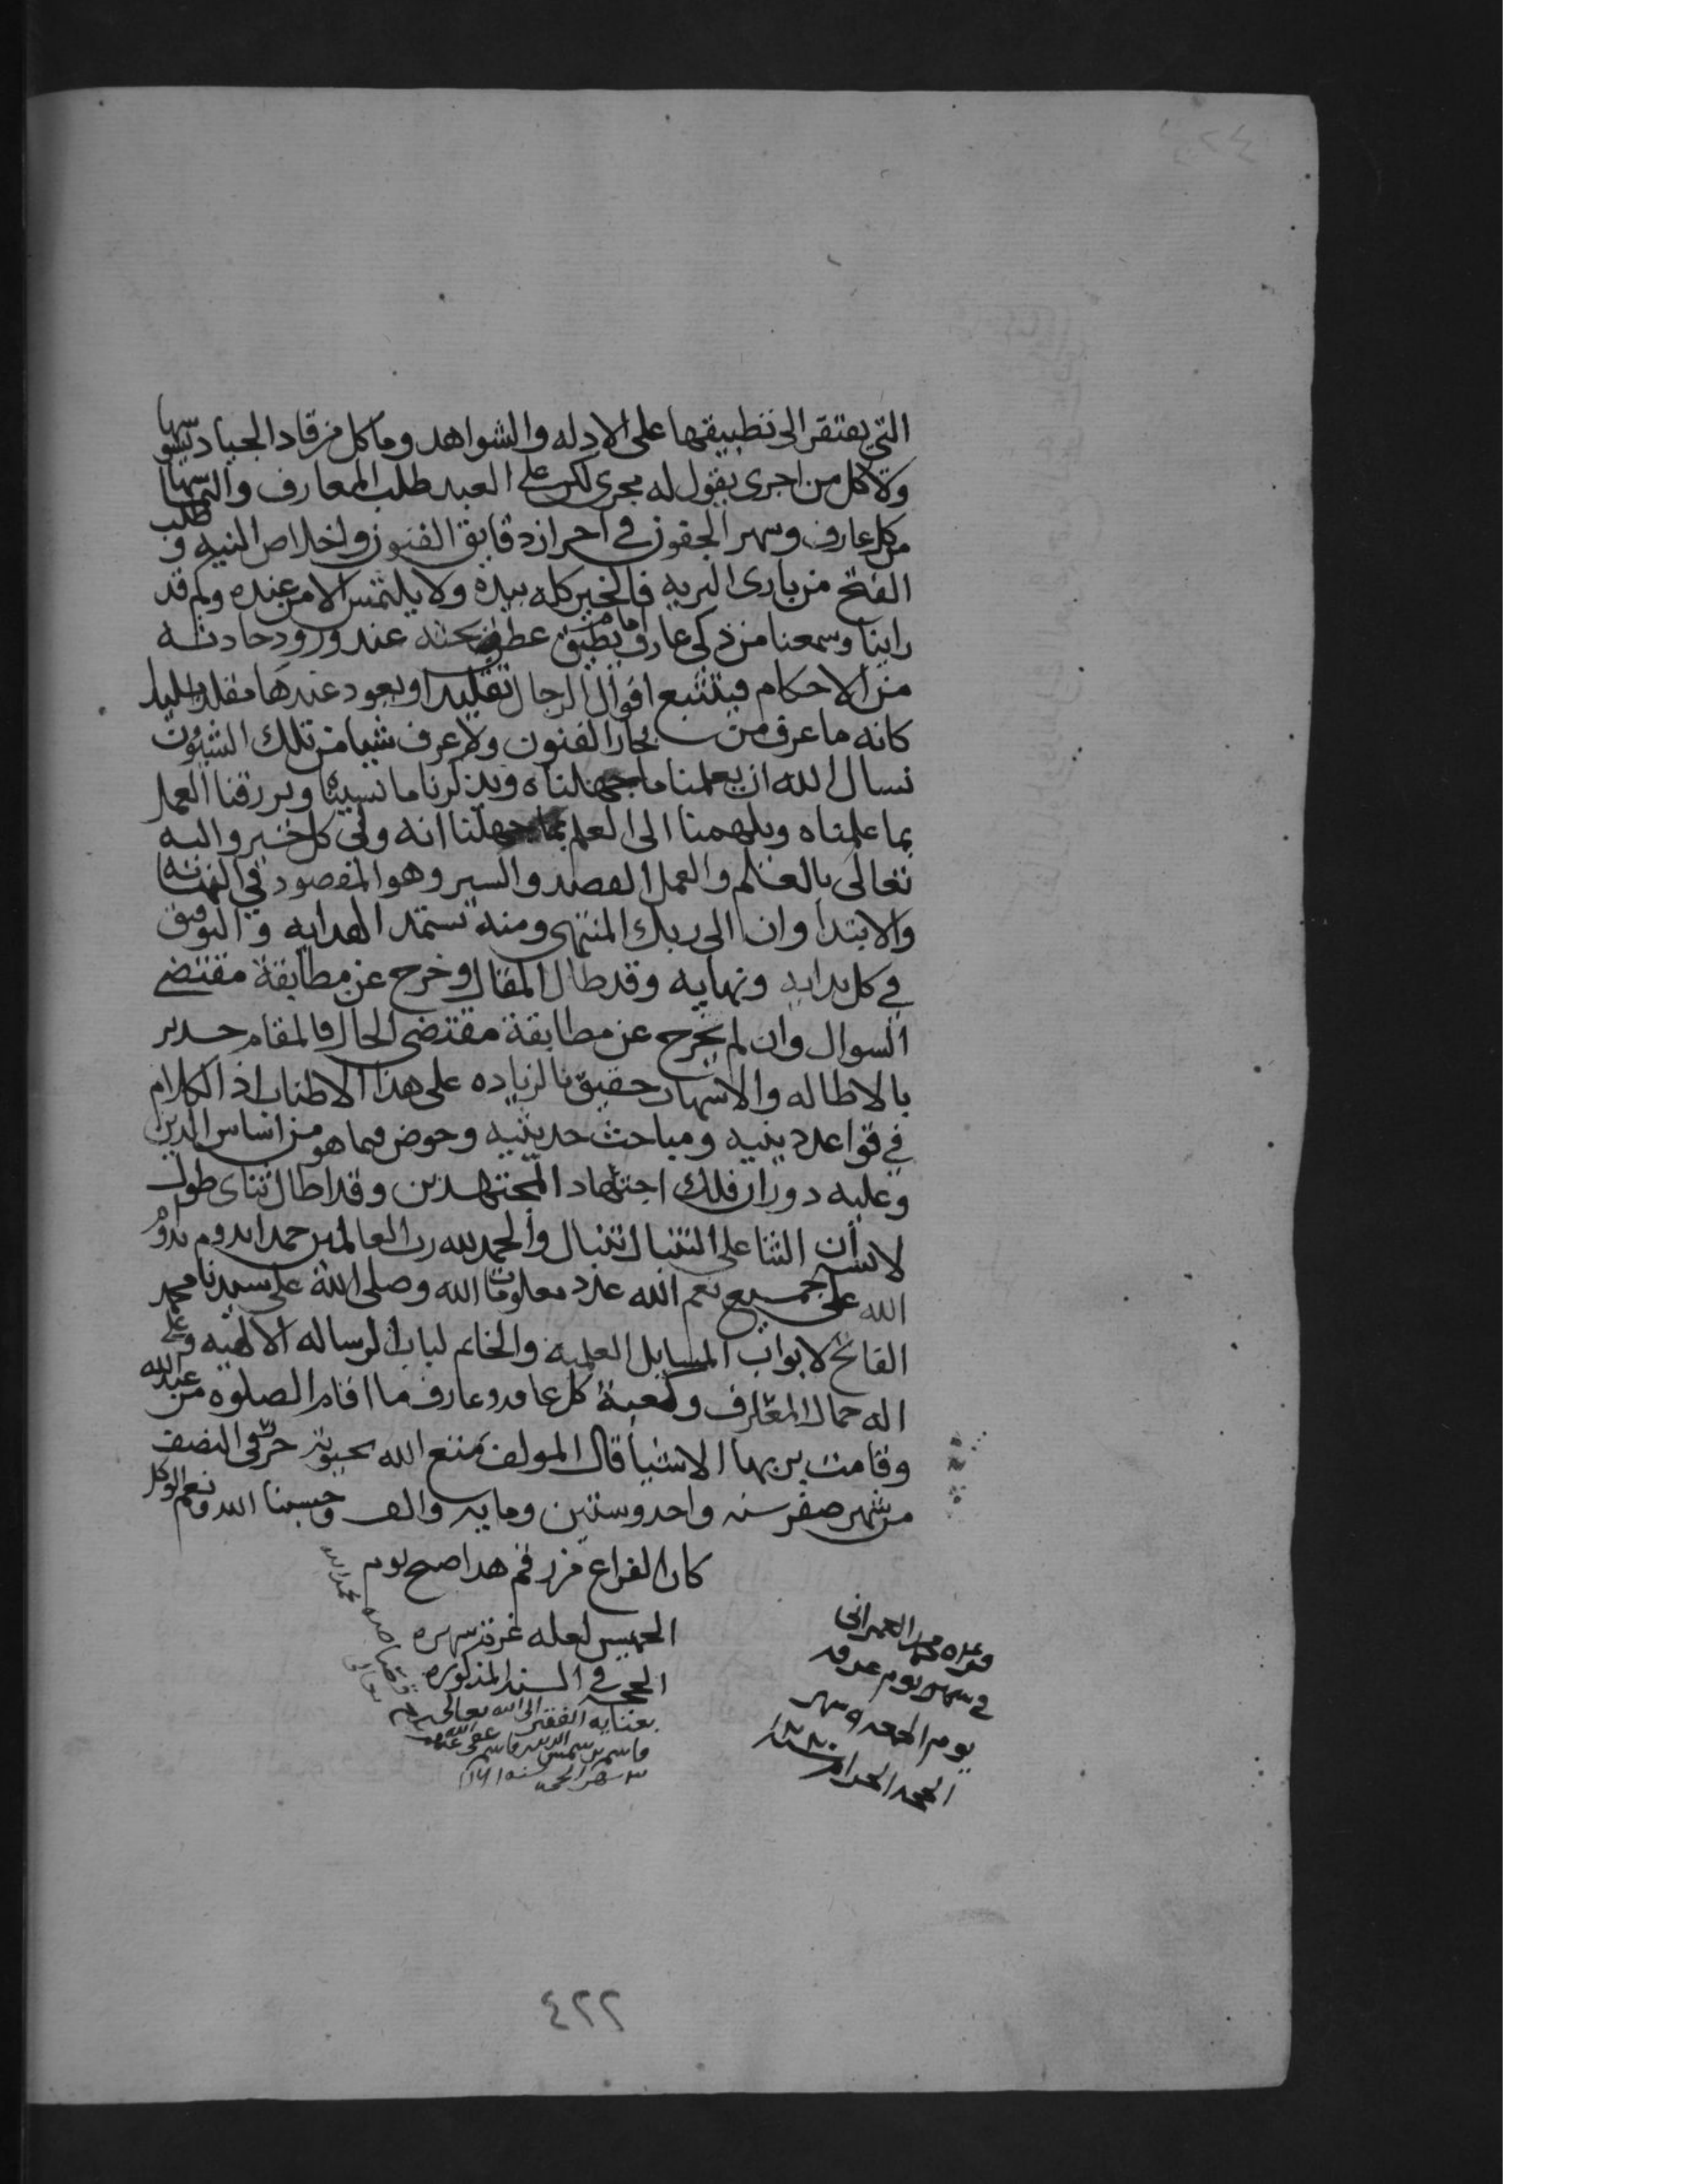 التي يفتقر الى تطبيقها على الادله والشواهد وما كل من قاد الجياد يسوسها
ولا كل من اجرى يقول له مجرى لكن على العبد طلب المعارف والتماسها
من كل عارف وسهر الجفون في احراز دقايق الفنون واخلاص النيه و طلب
الفتح من بارى البريه فالخير كله بيده ولا يلتمس الا من عنده ولم قد
راينا وسمعنا من ذكي عارف عند ورود حادثه
من الاحكام فيتتبع اقوال الرجال تقليدا ويعود عندها مقلدا بليدا
كانه ما عرف من بحار الفنون ولا عرف شيا من تلك الشيون
نسال الله ان يعلمنا ما جهلناه ويذكرنا ما نسينا ويرزقنا العمل
بما علمناه ويلهمنا الى العلم بما جهلنا انه ولي كل خير واليه
تعالى بالعلم والعمل القصد والسير وهو المقصود في النهايه
والابتدا وان الى ربك المنتهى ومنه تستمد الهدايه والتوفيق
في كل بدايه ونهايه وقد طال المقال وخرج عن مطابقة مقتضى
السوال وان لم يخرج عن مطابقة مقتضى الحال فالمقام جدير
بالاطاله والاسهاب حقيق بالزياده على هذا الاطناب اذ الكلام
في قواعد دينيه ومباحث حديثيه وخوض فيما هو من اساس الدين
وعليه دوران فلك اجتهاد المجتهدين وقد اطال ثناي طول
لابسه ان الثنا على التنبال تنبال والحمد لله رب العالمين حمدا يدوم بدوام
الله على جميع نعم الله عدد معلومات الله وصلى الله على سيدنا محمد
الفاتح لابواب المسايل العلميه والخاتم لباب الرساله الالهيه وعلى
اله حمال المعارف وكعبة كل عاقد وعارف ما اقام الصلوه من عبد الله
وقامت بربها الاشيا قال المولف متع الله بحيوته حرر في النصف
من شهر صفر سنه واحد وستين ومايه والف وحسبنا الله ونعم الوكيل
كان الفراغ من رقم هذا صبح يوم
الخميس لعله غرة شهر
الحجه في السنه المذكوره
بعنايه الفقير الى الله تعالى
قاسم بن شمس الدين قاسم عفى الله عنهم
شهر الحجه سنه ١١٦١
قراه محمد العمراني
في يوم عرفه
يوم الجمعه شهر
الحجه الحرام سنه
٤٢٢